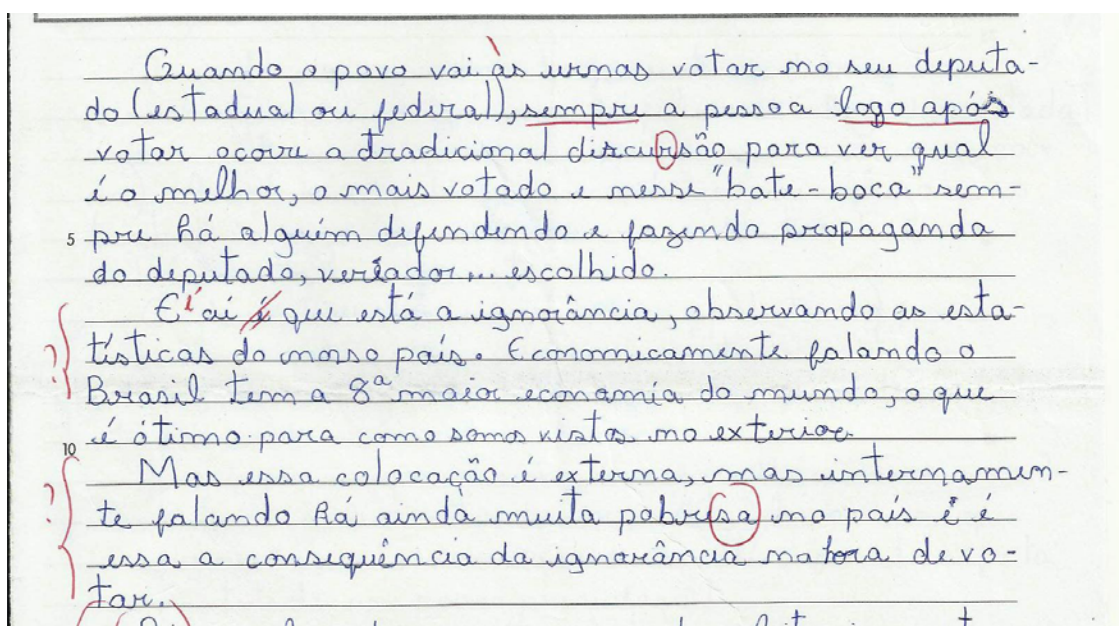 Quando o povo vai às urnas votar no seu deputa-
do (estadual ou federal), sempre a pessoa logo após
votar ocorre a tradicional discursão para ver qual
é o melhor, o mais votado e nesse "bate-boca" sem-
5 pre há alguém defendendo e fazendo propaganda
do deputado, vereador... escolhido.
E aí é que está a ignorância, observando as esta-
? tísticas do nosso país. Economicamente falando o
Brasil tem a 8ª maior economia do mundo, o que
10 é ótimo para como somos vistos no exterior.
Mas essa colocação é externa, mas internamen-
? te falando há ainda muita pobresa no país e é
essa a consequência da ignorância na hora de vo-
tar.